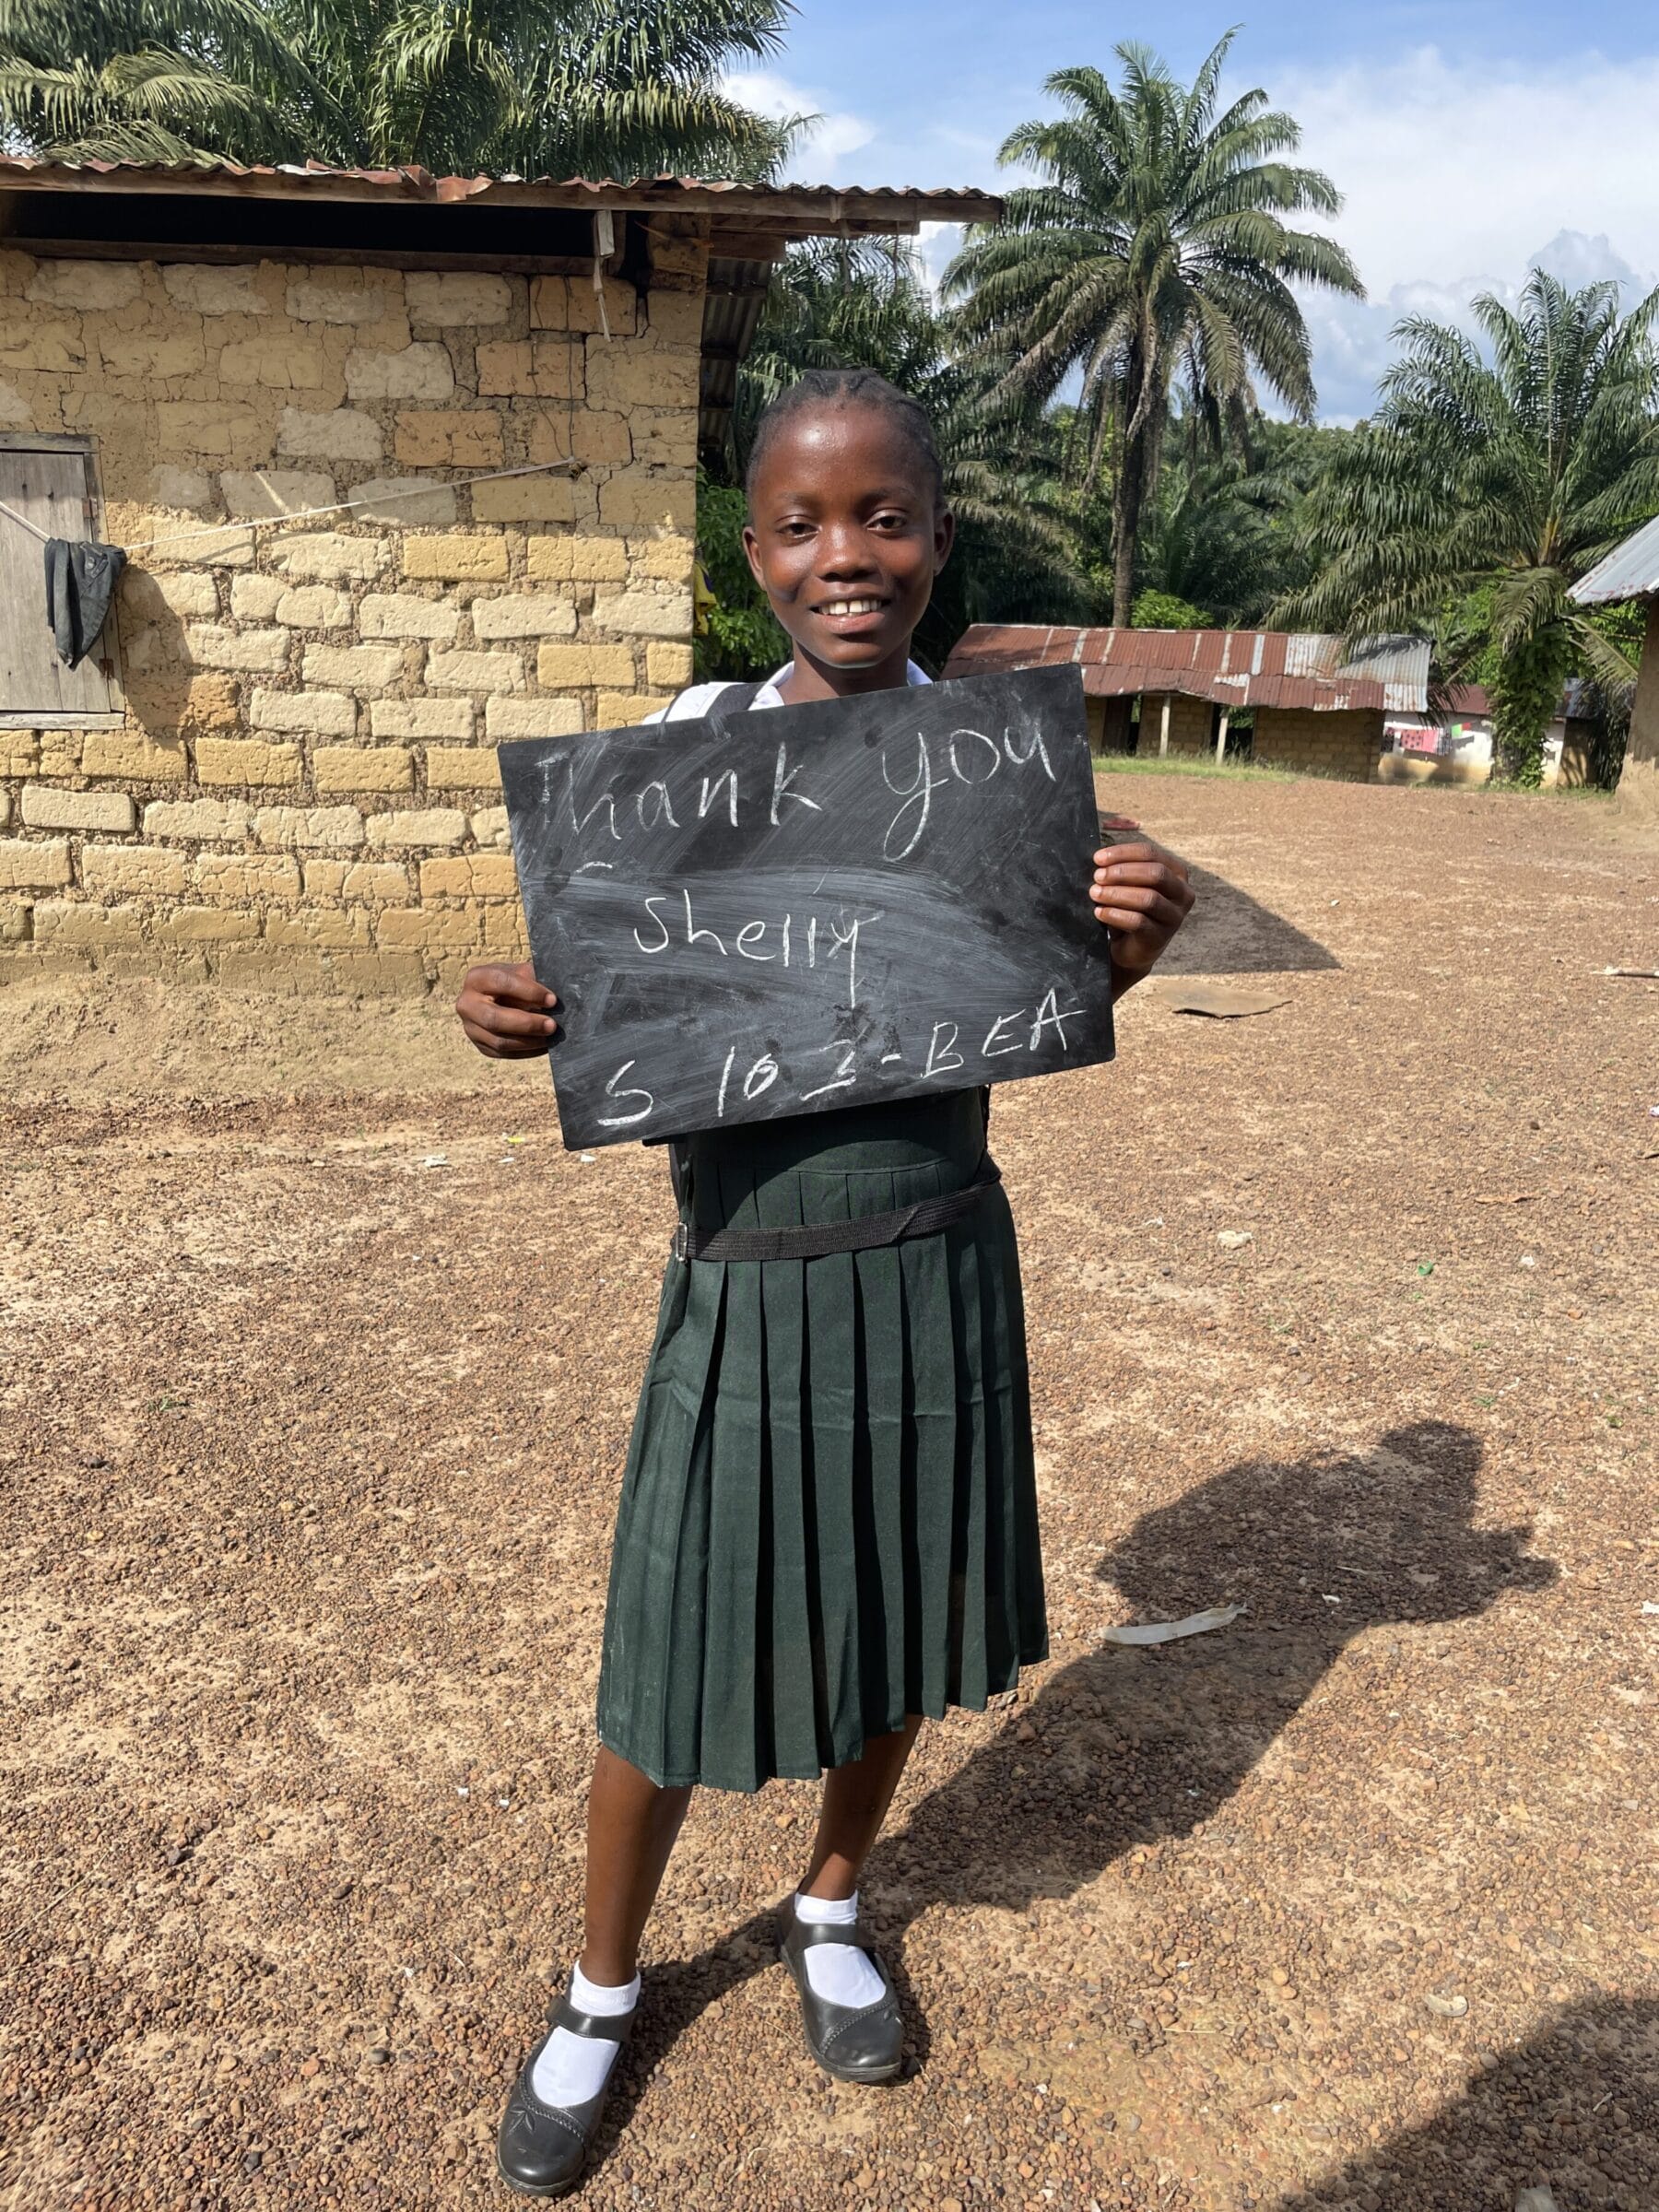 Thank you
Shelly
S 102-BEA